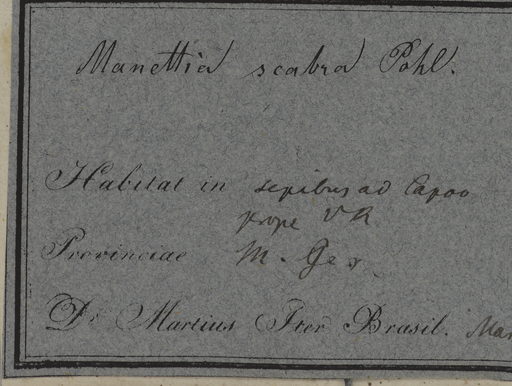 Manettia scabra Pohl.
Habitat in sepibus ad Capao
prope V R
Provinciae M. Ger.
Dr. Martius Iter Brasil. Mar